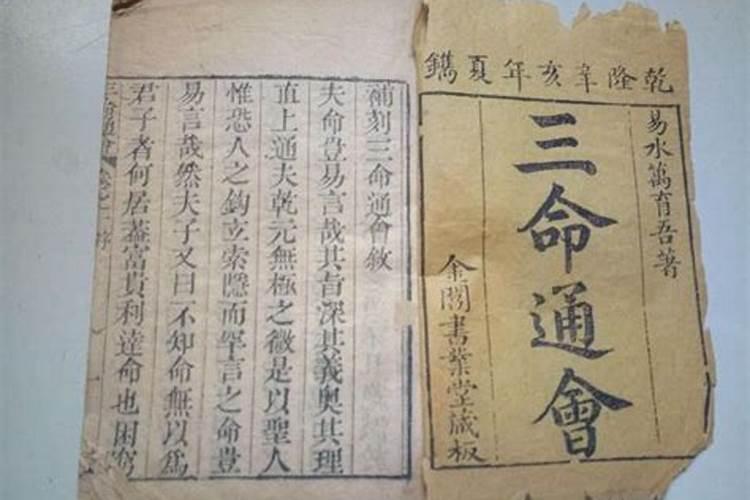 乾隆辛亥年夏鐫
易水萬育吾著
三命通會
金閶書業堂藏板
補刻三命通會敘
夫命豈易言哉其旨深其義奧其理
直上通夫乾元無極之微是以聖人
惟恐人之鈎立索隱而罕言之命豈
易言哉然夫子又曰不知命無以爲
君子者何居葢富貴利達命也困窮
三命通會
序